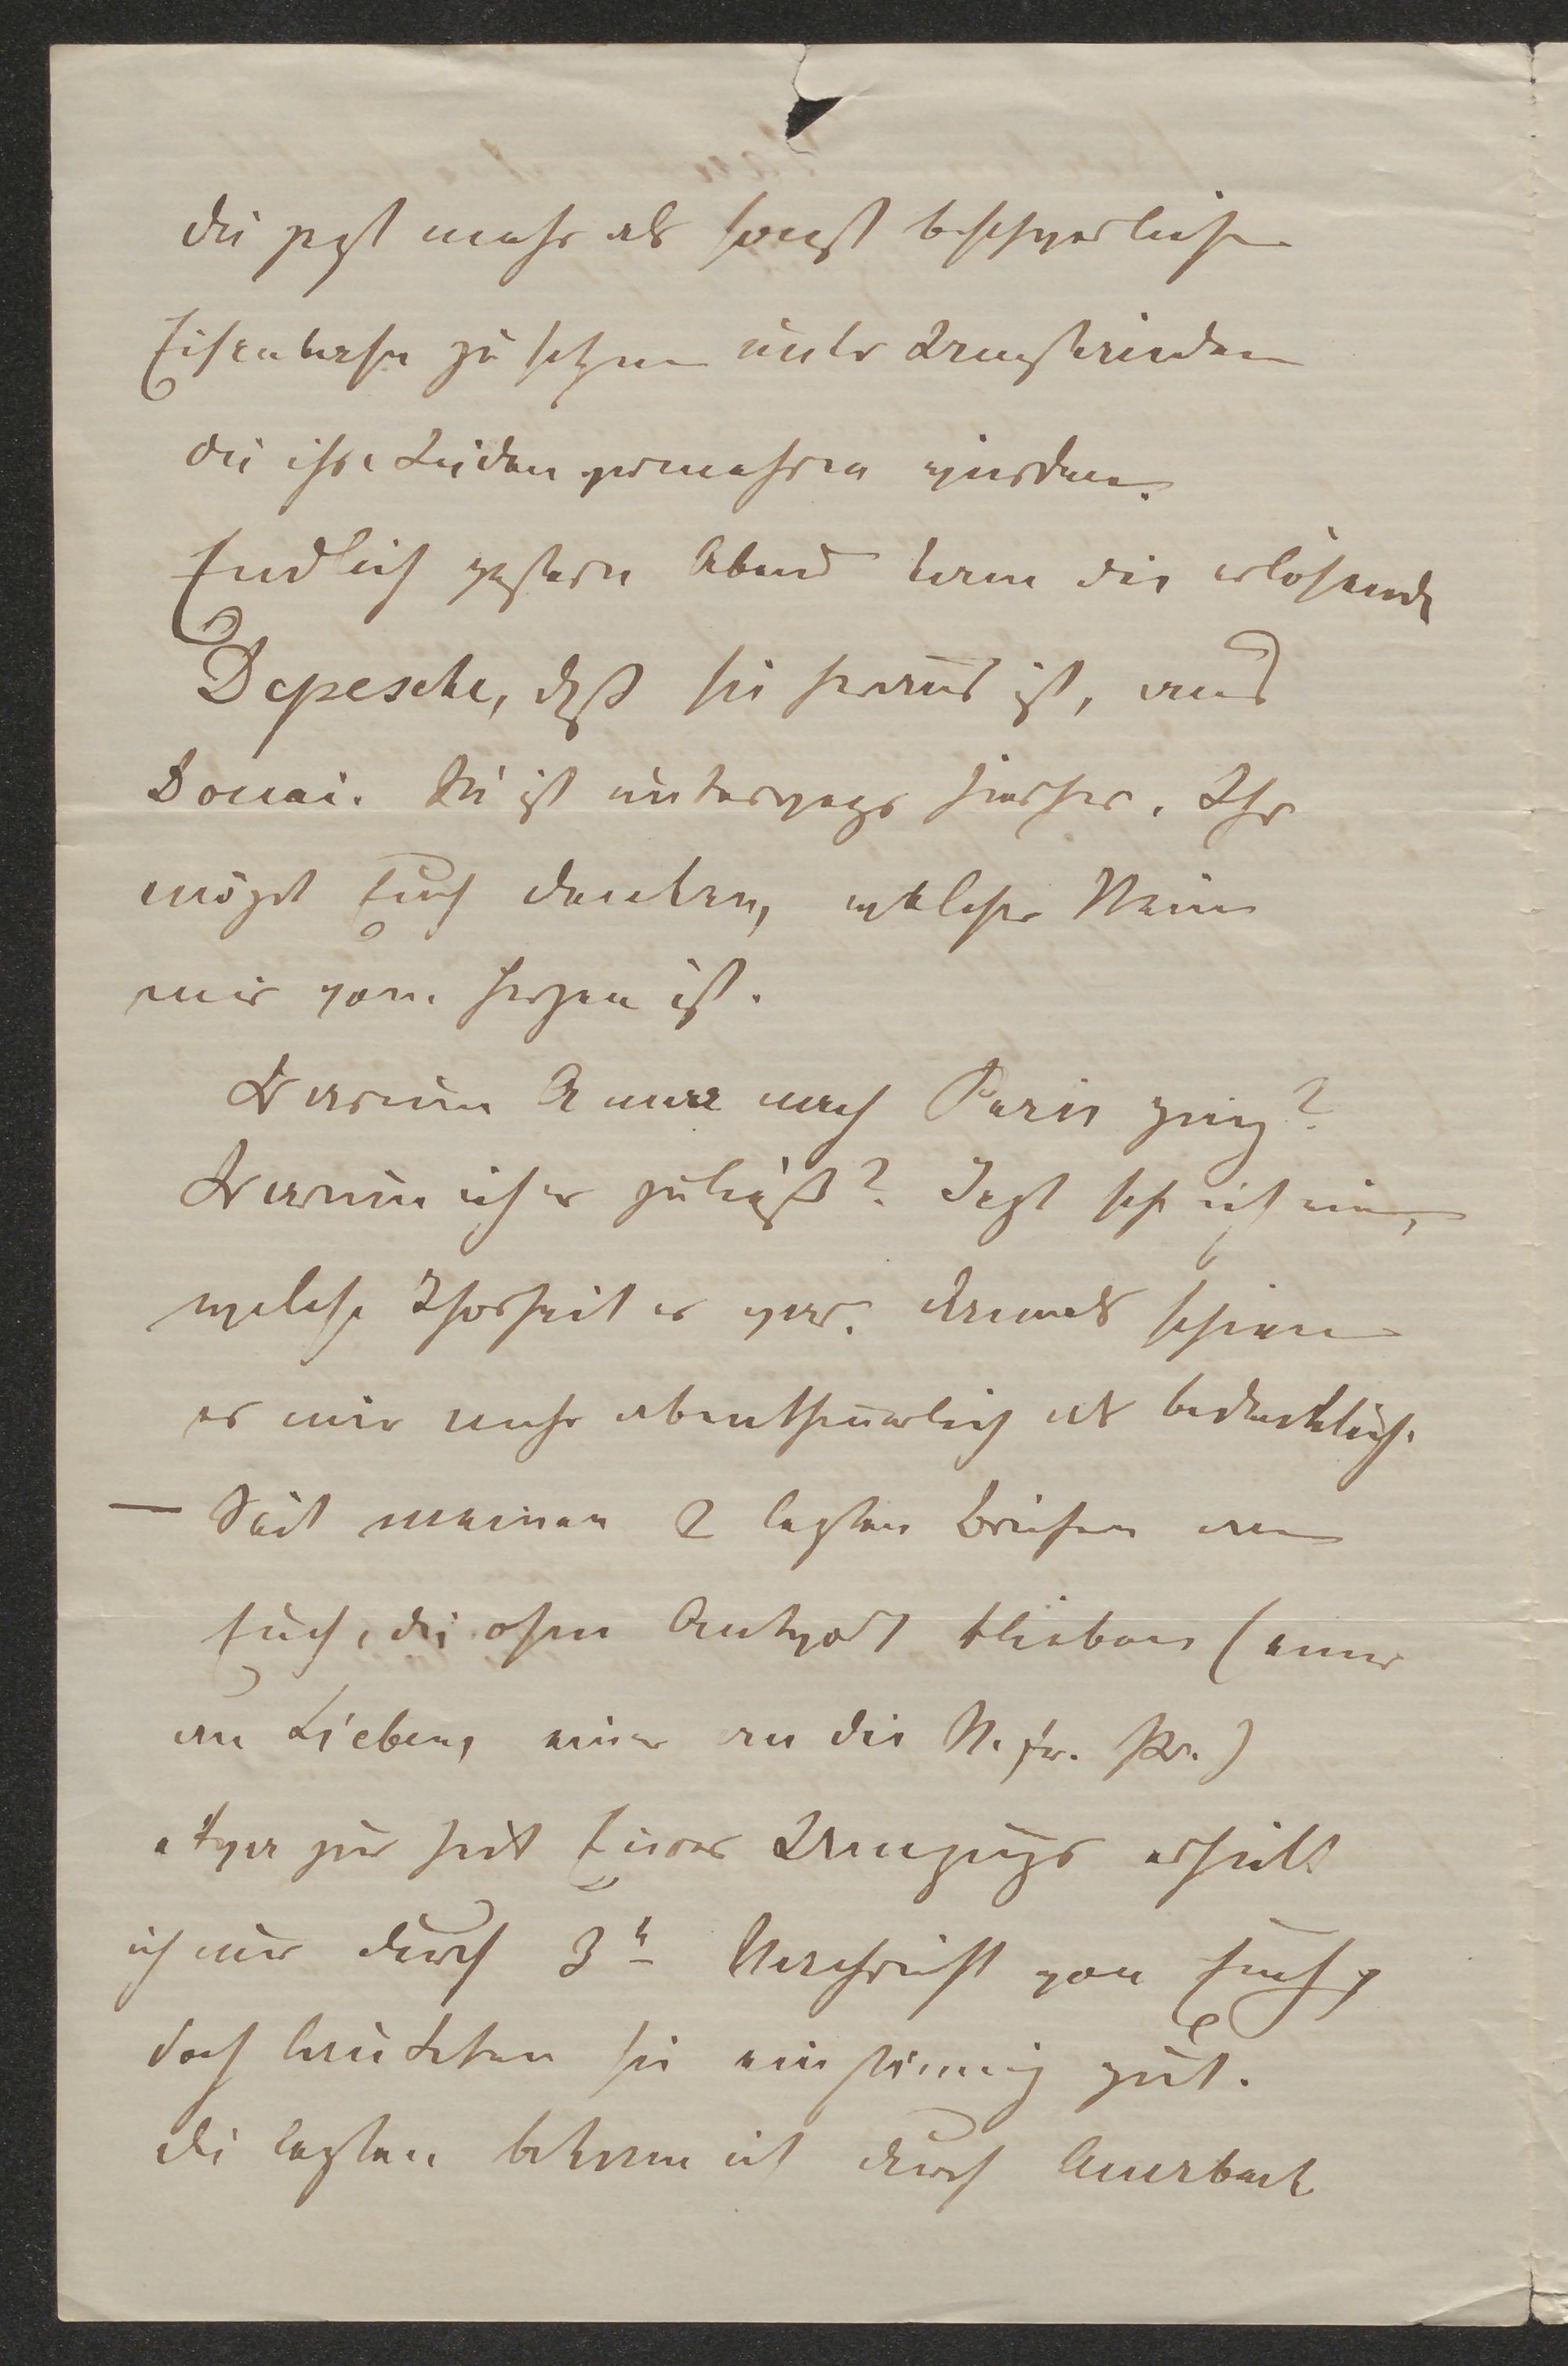 die jezt mehr als sonst beschwerliche
Eisenbahn zu setzen unter Umständen
die ihre Leiden vermehren würden.
Endlich gestern Abend kam die erlösende
Depesche, daß sie heraus ist, aus
Douai. Sie ist unterwegs hierher. Ihr
mögt Euch denken, welcher Stein
mir vom Herzen ist.
Warum Anna nach Paris ging?
Warum ich es zuließ? Jezt seh ich ein,
welche Thorheit es war. Damals schien
es mir mehr abentheuerlich als bedenklich.
— Seit meinen 2 lezten Briefen an
Euch, die ohne Antwort blieben (einer
an Lieben, einer an die N. fr. Pr.)
etwa zur Zeit Eures Umzugs erhielt
ich nur durch 3te Nachricht von Euch,
doch lauteten sie einstimmig gut.
Die lezten bekam ich durch Auerbach